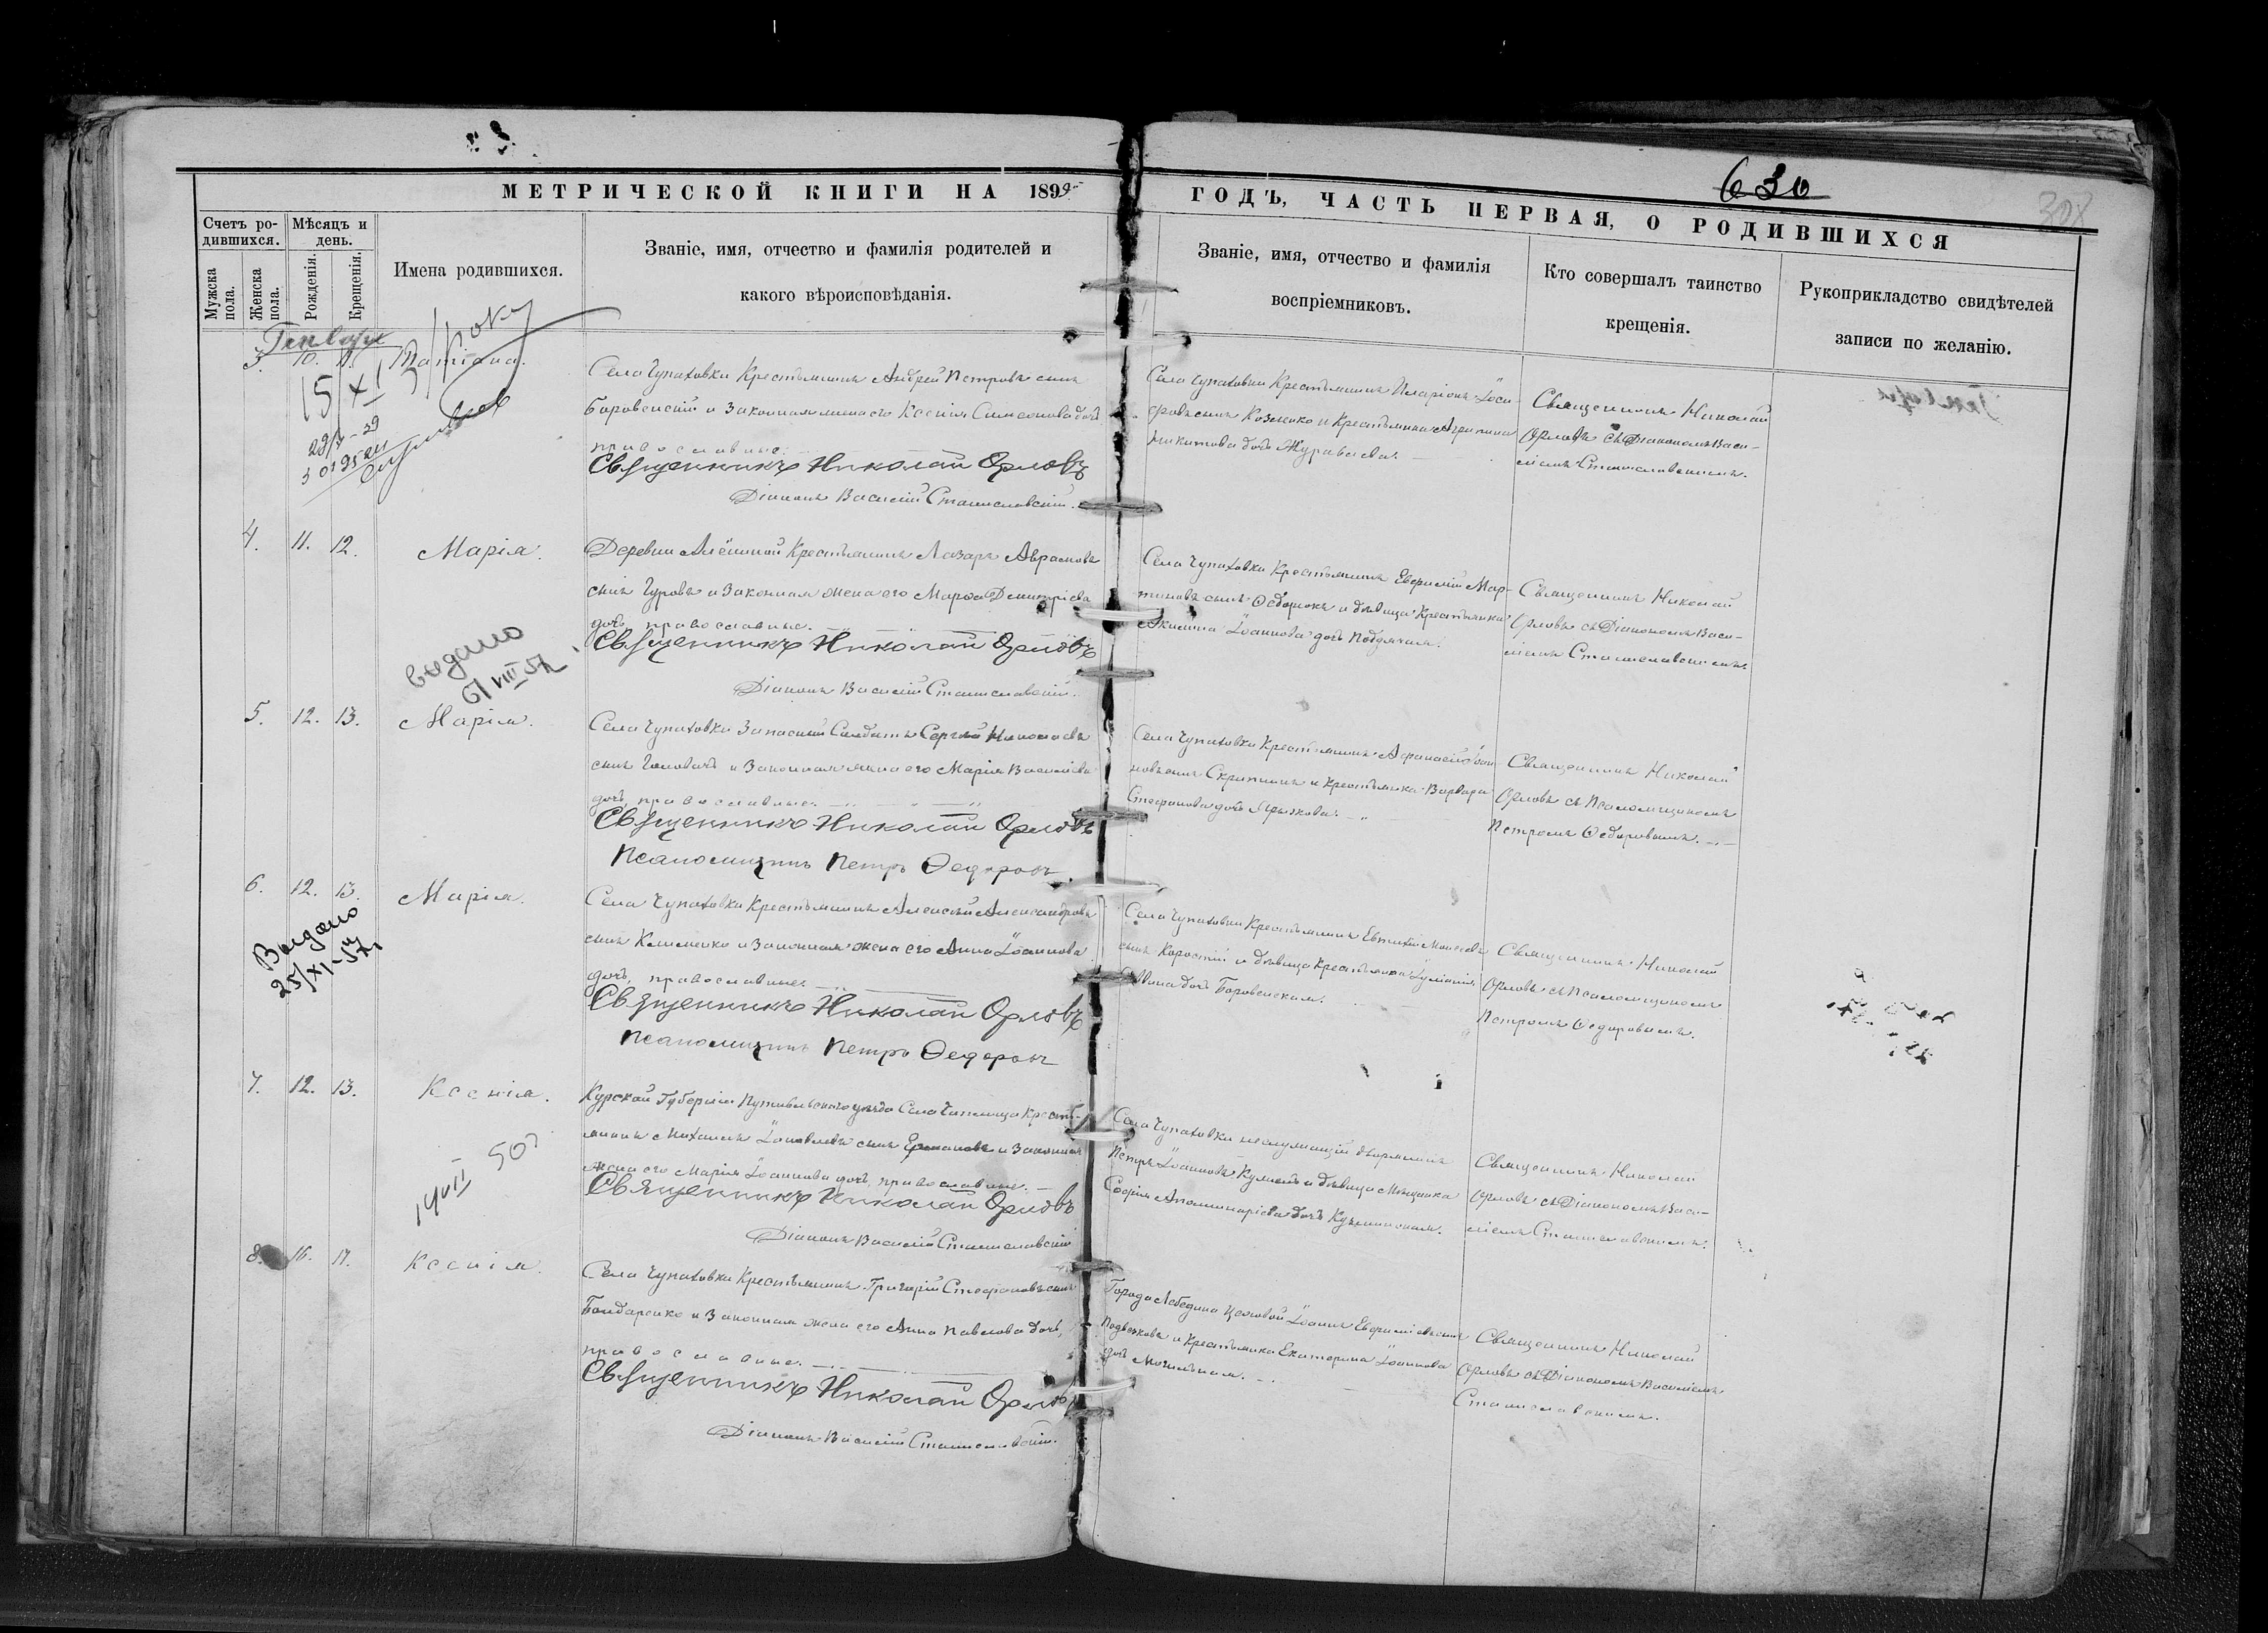 630
308
МЕТРИЧЕСКОЙ КНИГИ НА 1899
ГОДЪ, ЧАСТЬ ПЕРВАЯ, О РОДИВШИХСЯ
Счетъ ро-
дившихся.
Мужска
пола.
Женска
пола.
Мѣсяцъ и
день.
Рожденія.
Крещенія.
Имена родившихся.
Званіе, имя, отчество и фамилія родителей и
какого вѣроисповѣданія.
Званіе, имя, отчество и фамилія
воспріемниковъ.
Кто совершалъ таинство
крещенія.
Рукоприкладство свидѣтелей
записи по желанію.
3. 10. 11. Татіана.
Села Чупаховки Крестьянинъ Андрей Петровъ сынъ
Боровенскій и Законная жена его Ксенія Симеонова дочь
православные.
Священникъ Николай Орловъ
Діаконъ Василій Станиславскій.
Села Чупаховки Крестьянинъ Иларіонъ Іоси-
фовъ сынъ Козменко и Крестьянка Агрипина
Никитова дочь Журавлева.
Священникъ Николай
Орловъ съ Діакономъ Васи-
ліемъ Станиславскимъ.
4. 11. 12. Марія.
Деревни Алёшиной Крестьянинъ Лазарь Аврамовъ
сынъ Гуровъ и Законная жена его Марфа Димитріева
дочь, православные.
Священникъ Николай Орловъ
Діаконъ Василій Станиславскій.
Села Чупаховки Крестьянинъ Евфимій Мар-
тиновъ сынъ Федорюкъ и дѣвица Крестьянка
Акилина Іоаннова дочь
Священникъ Николай
Орловъ съ Діакономъ Васи-
ліемъ Станиславскимъ
выдано
6/VIII 57
5. 12. 13. Марія.
Села Чупаховки Запасный Солдатъ Сергѣй Николаевъ
сынъ Головачъ и Законная жена его Марія Василіева
дочь, православные.
Священникъ Николай Орловъ
Псаломщикъ Петръ Федоровъ.
Села Чупаховки Крестьянинъ Афанасій Іоан-
новъ сынъ Скрипкинъ и Крестьянка Варвара
Стефанова дочь
Священникъ Николай
Орловъ съ Псаломщикомъ
Петромъ Федоровымъ.
6. 12. 13. Марія.
Выдано
25/XI-57
Села Чупаховки Крестьянинъ Алексѣй Александровъ
сынъ Клименко и Законная жена его Анна Іоаннова
дочь, православные.
Священникъ Николай Орловъ
Псаломщикъ Петръ Федоровъ
Села Чупаховки Крестьянинъ Евтихій Моисеевъ
сынъ Коростій и дѣвица Крестьянка Іуліанія
Саввина дочь Боровенская.
Священникъ Николай
Орловъ съ Псаломщикомъ
Петромъ Федоровымъ.
7. 12. 13. Ксенія.
Курской Губерніи Путивльскаго уѣзда Села Чаплища Кресть-
янинъ Михаилъ Іаковлевъ сынъ Ермаковъ и Законная
жена его Марія Іоаннова дочь, православные.
Священникъ Николай Орловъ
Діаконъ Василій Станиславскій
Села Чупаховки неслужащій дворянинъ
Петръ Іоанновъ и дѣвица Мѣщанка
Софія Аполинаріева дочь
Священникъ Николай
Орловъ съ Діакономъ Васи-
ліемъ Станиславскимъ.
8. 16. 17. Ксенія.
Села Чупаховки Крестьянинъ Григорій Стефановъ сынъ
Бондаренко и Законная жена его Анна Павлова дочь,
православные.
Священникъ Николай Орловъ
Діаконъ Василій Станиславскій.
Города Лебедина цеховой Іоаннъ Евфиміевъ сынъ
и Крестьянка Екатерина Іоаннова
дочь Могильная.
Священникъ Николай
Орловъ съ Діакономъ Василіемъ
Станиславскимъ.